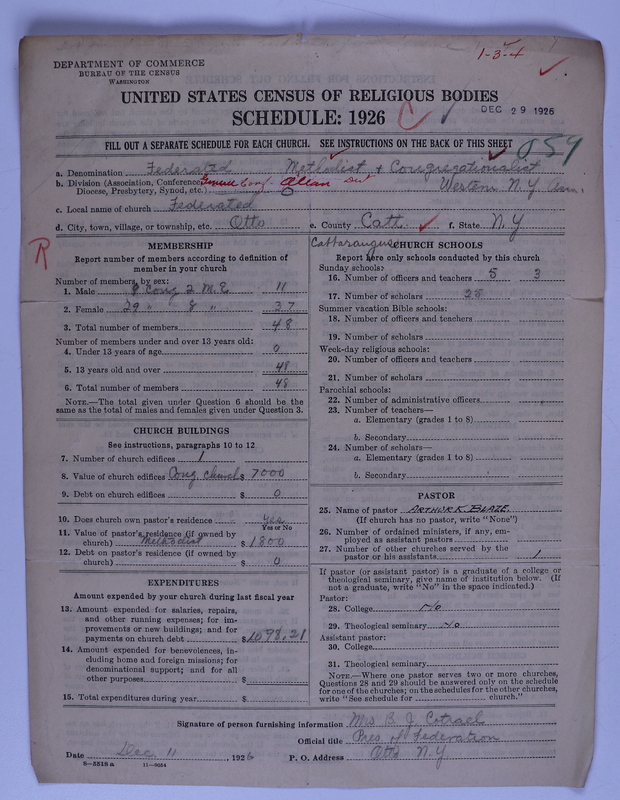 1-3-4
DEPARTMENT OF COMMERCE
BUREAU OF THE CENSUS
WASHINGTON
UNITED STATES CENSUS OF RELIGIOUS BODIES
SCHEDULE: 1926
DEC 29 1926
FILL OUT A SEPARATE SCHEDULE FOR EACH CHURCH. SEE INSTRUCTIONS ON THE BACK OF THIS SHEET
a. Denomination Federated Methodist + Congregationalist
b. Division (Association, Conference, Diocese, Presbytery, Synod, etc.) Western N.Y.
c. Local name of church Federated
d. City, town, village, or township, etc. Otto e. County Catt. f. State N.Y
Cattaraugus
R
MEMBERSHIP
Report number of members according to definition of
member in your church
Number of members by sex:
1. Male 8 Cong 2 M.E. 11
2. Female 29 " 8 " 37
3. Total number of members 48
Number of members under and over 13 years old:
4. Under 13 years of age 0
5. 13 years old and over 48
6. Total number of members 48
NOTE.—The total given under Question 6 should be
the same as the total of males and females given under Question 3.
CHURCH BUILDINGS
See instructions, paragraphs 10 to 12
7. Number of church edifices 1
8. Value of church edifices Cong. church $ 7000
9. Debt on church edifices $ 0
10. Does church own pastor's residence yes
Yes or No
11. Value of pastor's residence (if owned by
church) Methodist $ 1800
12. Debt on pastor's residence (if owned by
church) $ 0
EXPENDITURES
Amount expended by your church during last fiscal year
13. Amount expended for salaries, repairs,
and other running expenses; for im-
provements or new buildings; and for
payments on church debt $ 1098.21
14. Amount expended for benevolences, in-
cluding home and foreign missions; for
denominational support; and for all
other purposes $
15. Total expenditures during year $
CHURCH SCHOOLS
Report here only schools conducted by this church
Sunday schools:
16. Number of officers and teachers 5 3
17. Number of scholars 25
Summer vacation Bible schools:
18. Number of officers and teachers
19. Number of scholars
Week-day religious schools:
20. Number of officers and teachers
21. Number of scholars
Parochial schools:
22. Number of administrative officers
23. Number of teachers—
a. Elementary (grades 1 to 8)
b. Secondary
24. Number of scholars—
a. Elementary (grades 1 to 8)
b. Secondary
PASTOR
25. Name of pastor ARTHUR K. BLAZE
(If church has no pastor, write "None")
26. Number of ordained ministers, if any, em-
ployed as assistant pastors
27. Number of other churches served by the
pastor or his assistants 1
If pastor (or assistant pastor) is a graduate of a college or
theological seminary, give name of institution below. (If
not a graduate, write "No" in the space indicated.)
Pastor:
28. College No
29. Theological seminary No
Assistant pastor:
30. College
31. Theological seminary
NOTE.—Where one pastor serves two or more churches,
Questions 28 and 29 should be answered only on the schedule
for one of the churches; on the schedules for the other churches,
write "See schedule for church."
Signature of person furnishing information Mrs B. J. Cotrael
Official title Pres of Federation
Date Dec 11, 1926 P. O. Address Otto N.Y
8-5518 a 11-9054